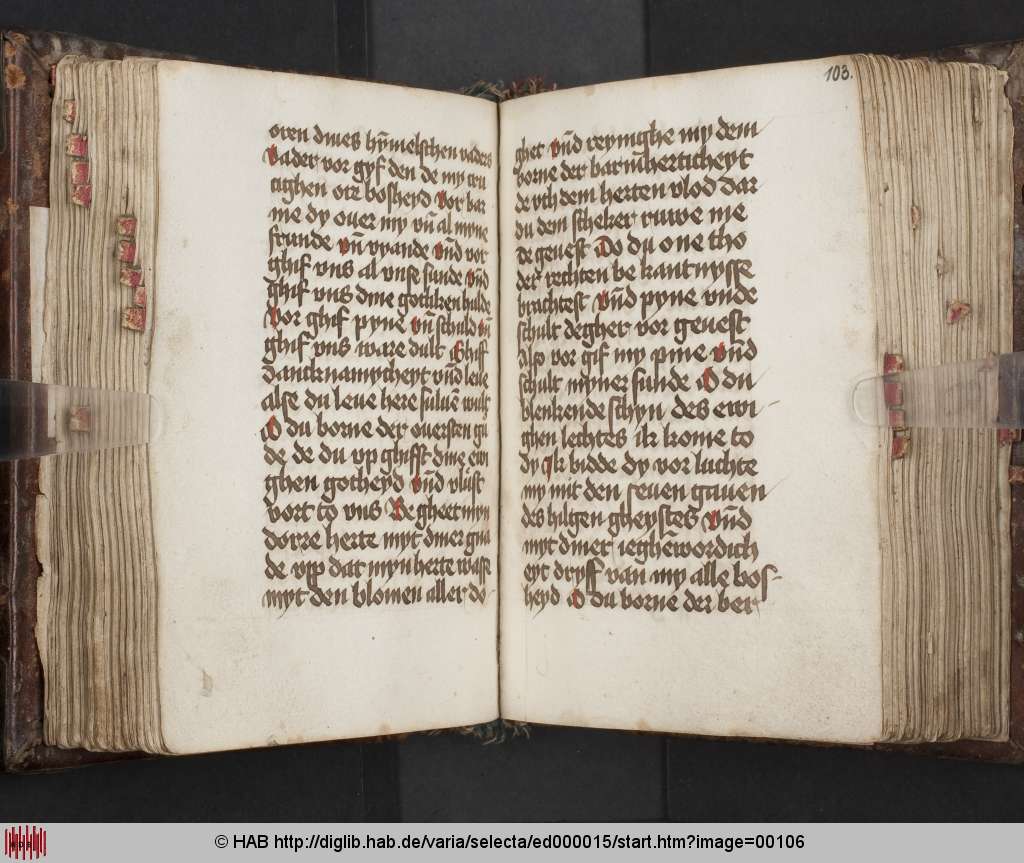 oren dines hȳmelschen vaders
Vader vor gyf den de my cru
cighen orer bosheyd Vor bar
me dy ouer my vn̄ al myne
frunde vn̄ vyande Vn̄d vor
ghif vns al vnse sunde vn̄d
ghif vns dine gotliken hulde
Vor ghif pyne vn̄ schuld vn̄
ghif vns ware dult Ghif
dancknamycheyt vn̄d leue
alse du leue here suluē wult
O du borne der ouersten gu
de de du vp ghifst dine ewi
ghen gotheyd vn̄d vlust
vort to vns Be gheet myn
dorre herte myt diner gna
de vp dat myn herte wasse
myt den blomen aller do-
103.
ghet vn̄d reynighe my dem
borne der barmhertichëyt
de vth dem herten vlod dar
du dem scheker ruwe me
de geuest Do du one tho
der rechten be kantnysse
brachtest Vn̄d pyne vnde
schult degher vor geuest
Also vor gif my pine vn̄d
schult myner sunde O du
blenkende schyn des ewi
ghen lechtes ik kome to
dy Ik bidde dy vor luchte
my mit den seuen gauen
des hilgen gheystes Vn̄d
myt diner ieghēwordich
eyt dryff van my alle bos-
heyd O du borne der ber
© HAB http://diglib.hab.de/varia/selecta/ed000015/start.htm?image=00106